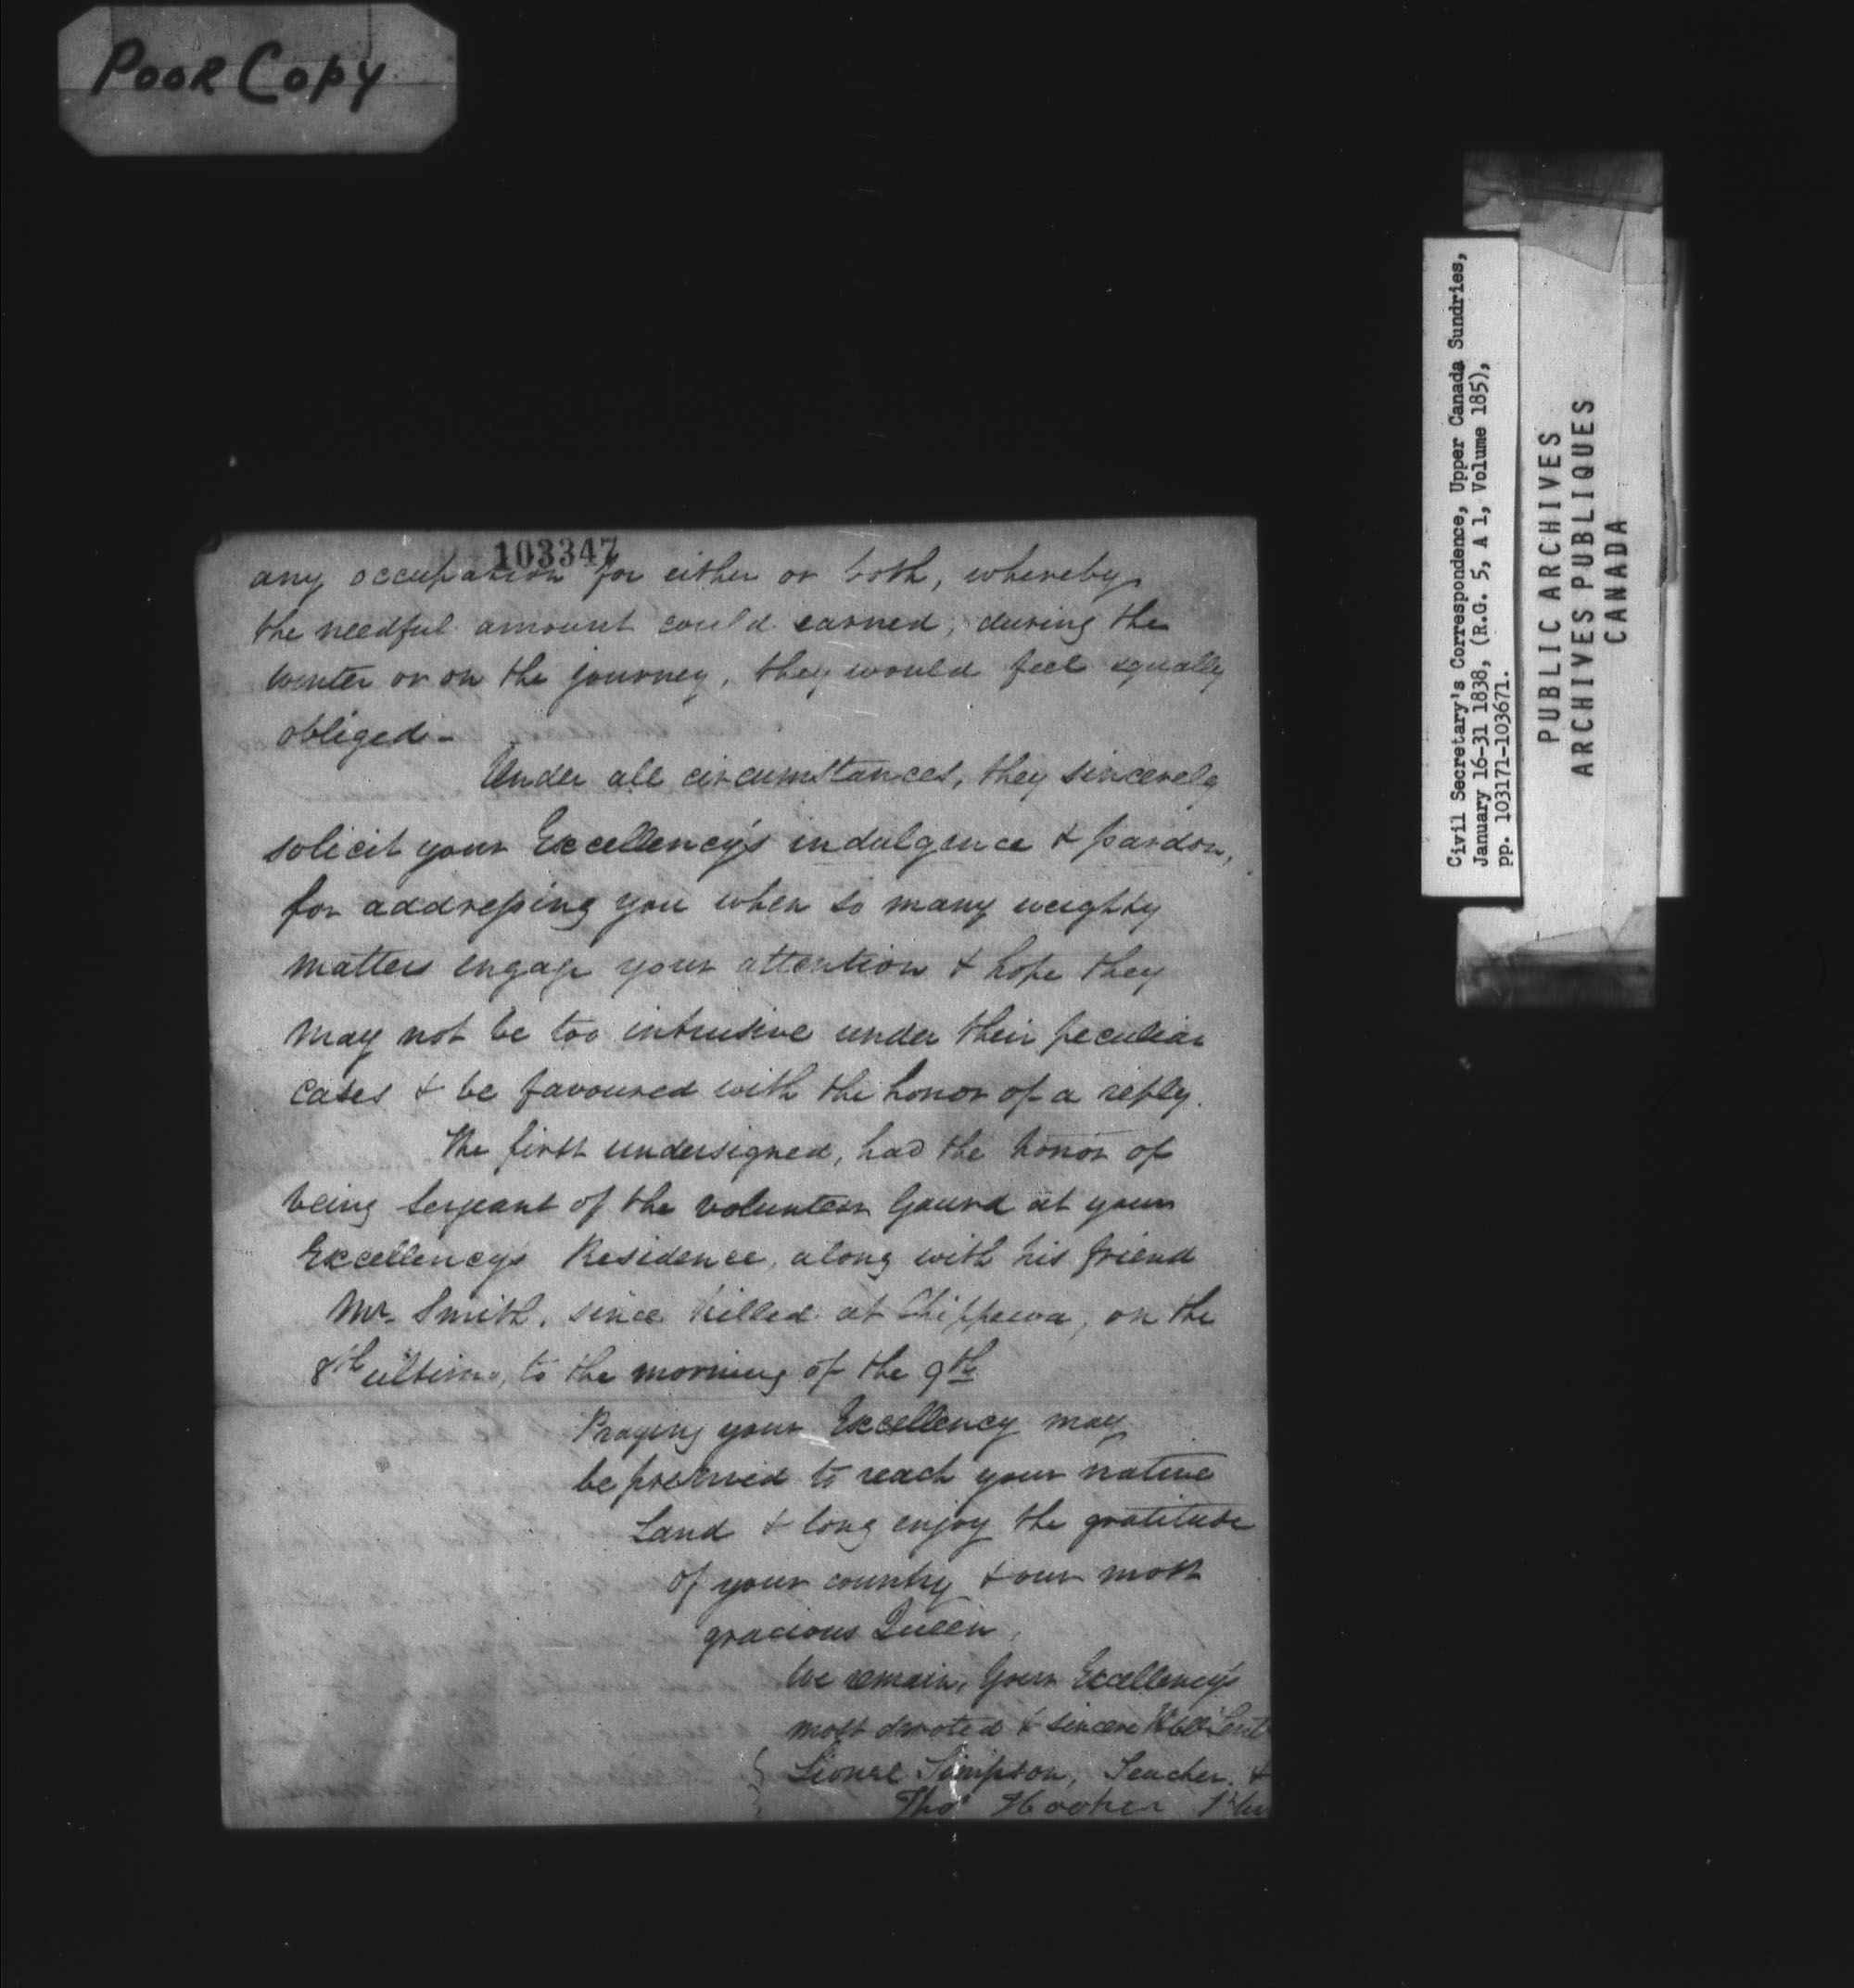 Poor Copy
103347
any occupation for either or both, whereby
the needful amount could earned, during the
winter or on the journey, they would feel equally
obliged-
Under all circumstances, they sincerely
solicit your Excellency's indulgence & pardon,
for addressing you when so many weighty
matters engage your attention & hope they
may not be too intrusive under their peculiar
cases & be favoured with the honor of a reply.
The first undersigned, had the honor of
being Serjeant of the volunteer Gaurd at your
Excellency's Residence, along with his friend
Mr. Smith, since killed at Chippewa, on the
8th ultimo, to the morning of the 9th
Praying your Excellency may
be preserved to reach your native
Land & long enjoy the gratitude
of your country & our most
gracious Queen,
We remain, Your Excellency's
most devoted & sincere
Lionel Simpson, Teacher. &
Thos Hooker
Civil Secretary's Correspondence, Upper Canada Sundries,
January 16-31 1838, (R.G. 5, A 1, Volume 185),
pp. 103171-103671.
PUBLIC ARCHIVES
ARCHIVES PUBLIQUES
CANADA